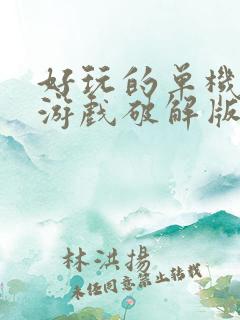 好玩的单機
游戲破解版
林洪揚
未经同意禁止转载